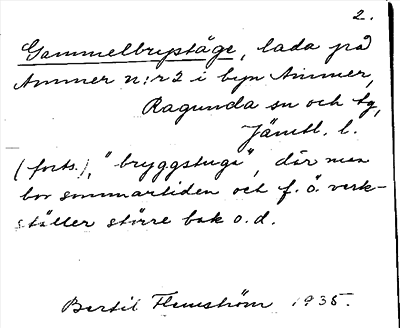 2.
Gammelbrystäge, lada på
Ammer n:r 2 i byn Ammer,
Ragunda sn och tg,
Jämtl. l.
(forts.), "bryggstuga", där man
bor sommartiden och f. ö. verk-
ställer större bak o.d.
Bertil Flemström 1935.